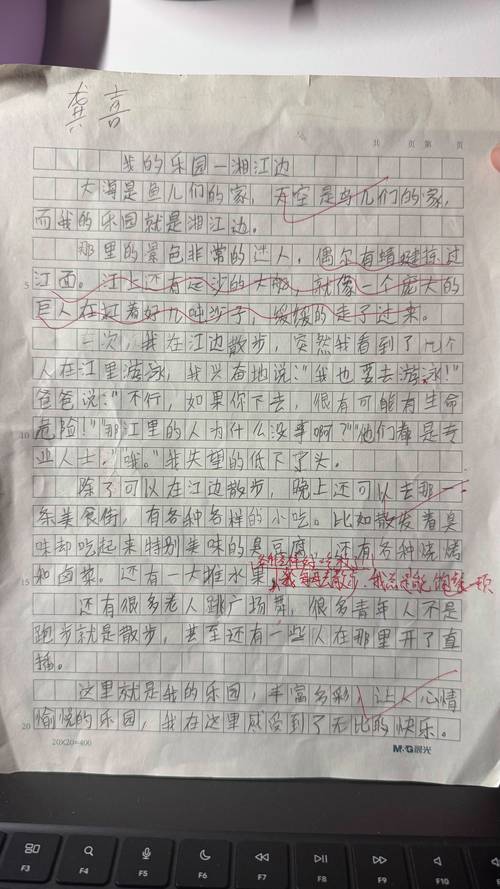 龚喜
共 页 第 页
我的乐园—湘江边
大海是鱼儿们的家，天空是鸟儿们的家，
而我的乐园就是湘江边。
那里的景色非常的迷人，偶尔有蜻蜓掠过
5
江面。江上还有运沙的大船，就像一个庞大的
巨人在扛着好几吨沙子，缓缓的走了过来。
一次，我在江边散步，突然我看到了几个
人在江里游泳，我兴奋地说："我也要去游泳！"
爸爸说："不行，如果你下去，很有可能有生命
10
危险！""那江里的人为什么没事啊？""他们都是专
业人士。""哦。"我失望的低下了头。
除了可以在江边散步，晚上还可以去那一
条美食街，有各种各样的小吃。比如散发着臭
味却吃起来特别美味的臭豆腐，还有各种烧烤
15
和卤菜。还有一大堆水果
我每每去散步，我总是能饱餐一顿
还有很多老人跳广场舞，很多青年人不是
跑步就是散步，甚至还有一些人在那里开了直
播。
这里就是我的乐园，丰富多彩，让人心情
20
愉悦的乐园，我在这里感受到了无比的快乐。
20X20=400
M&G 晨光
F3
F4
F5
F6
F7
F8
F9
F10